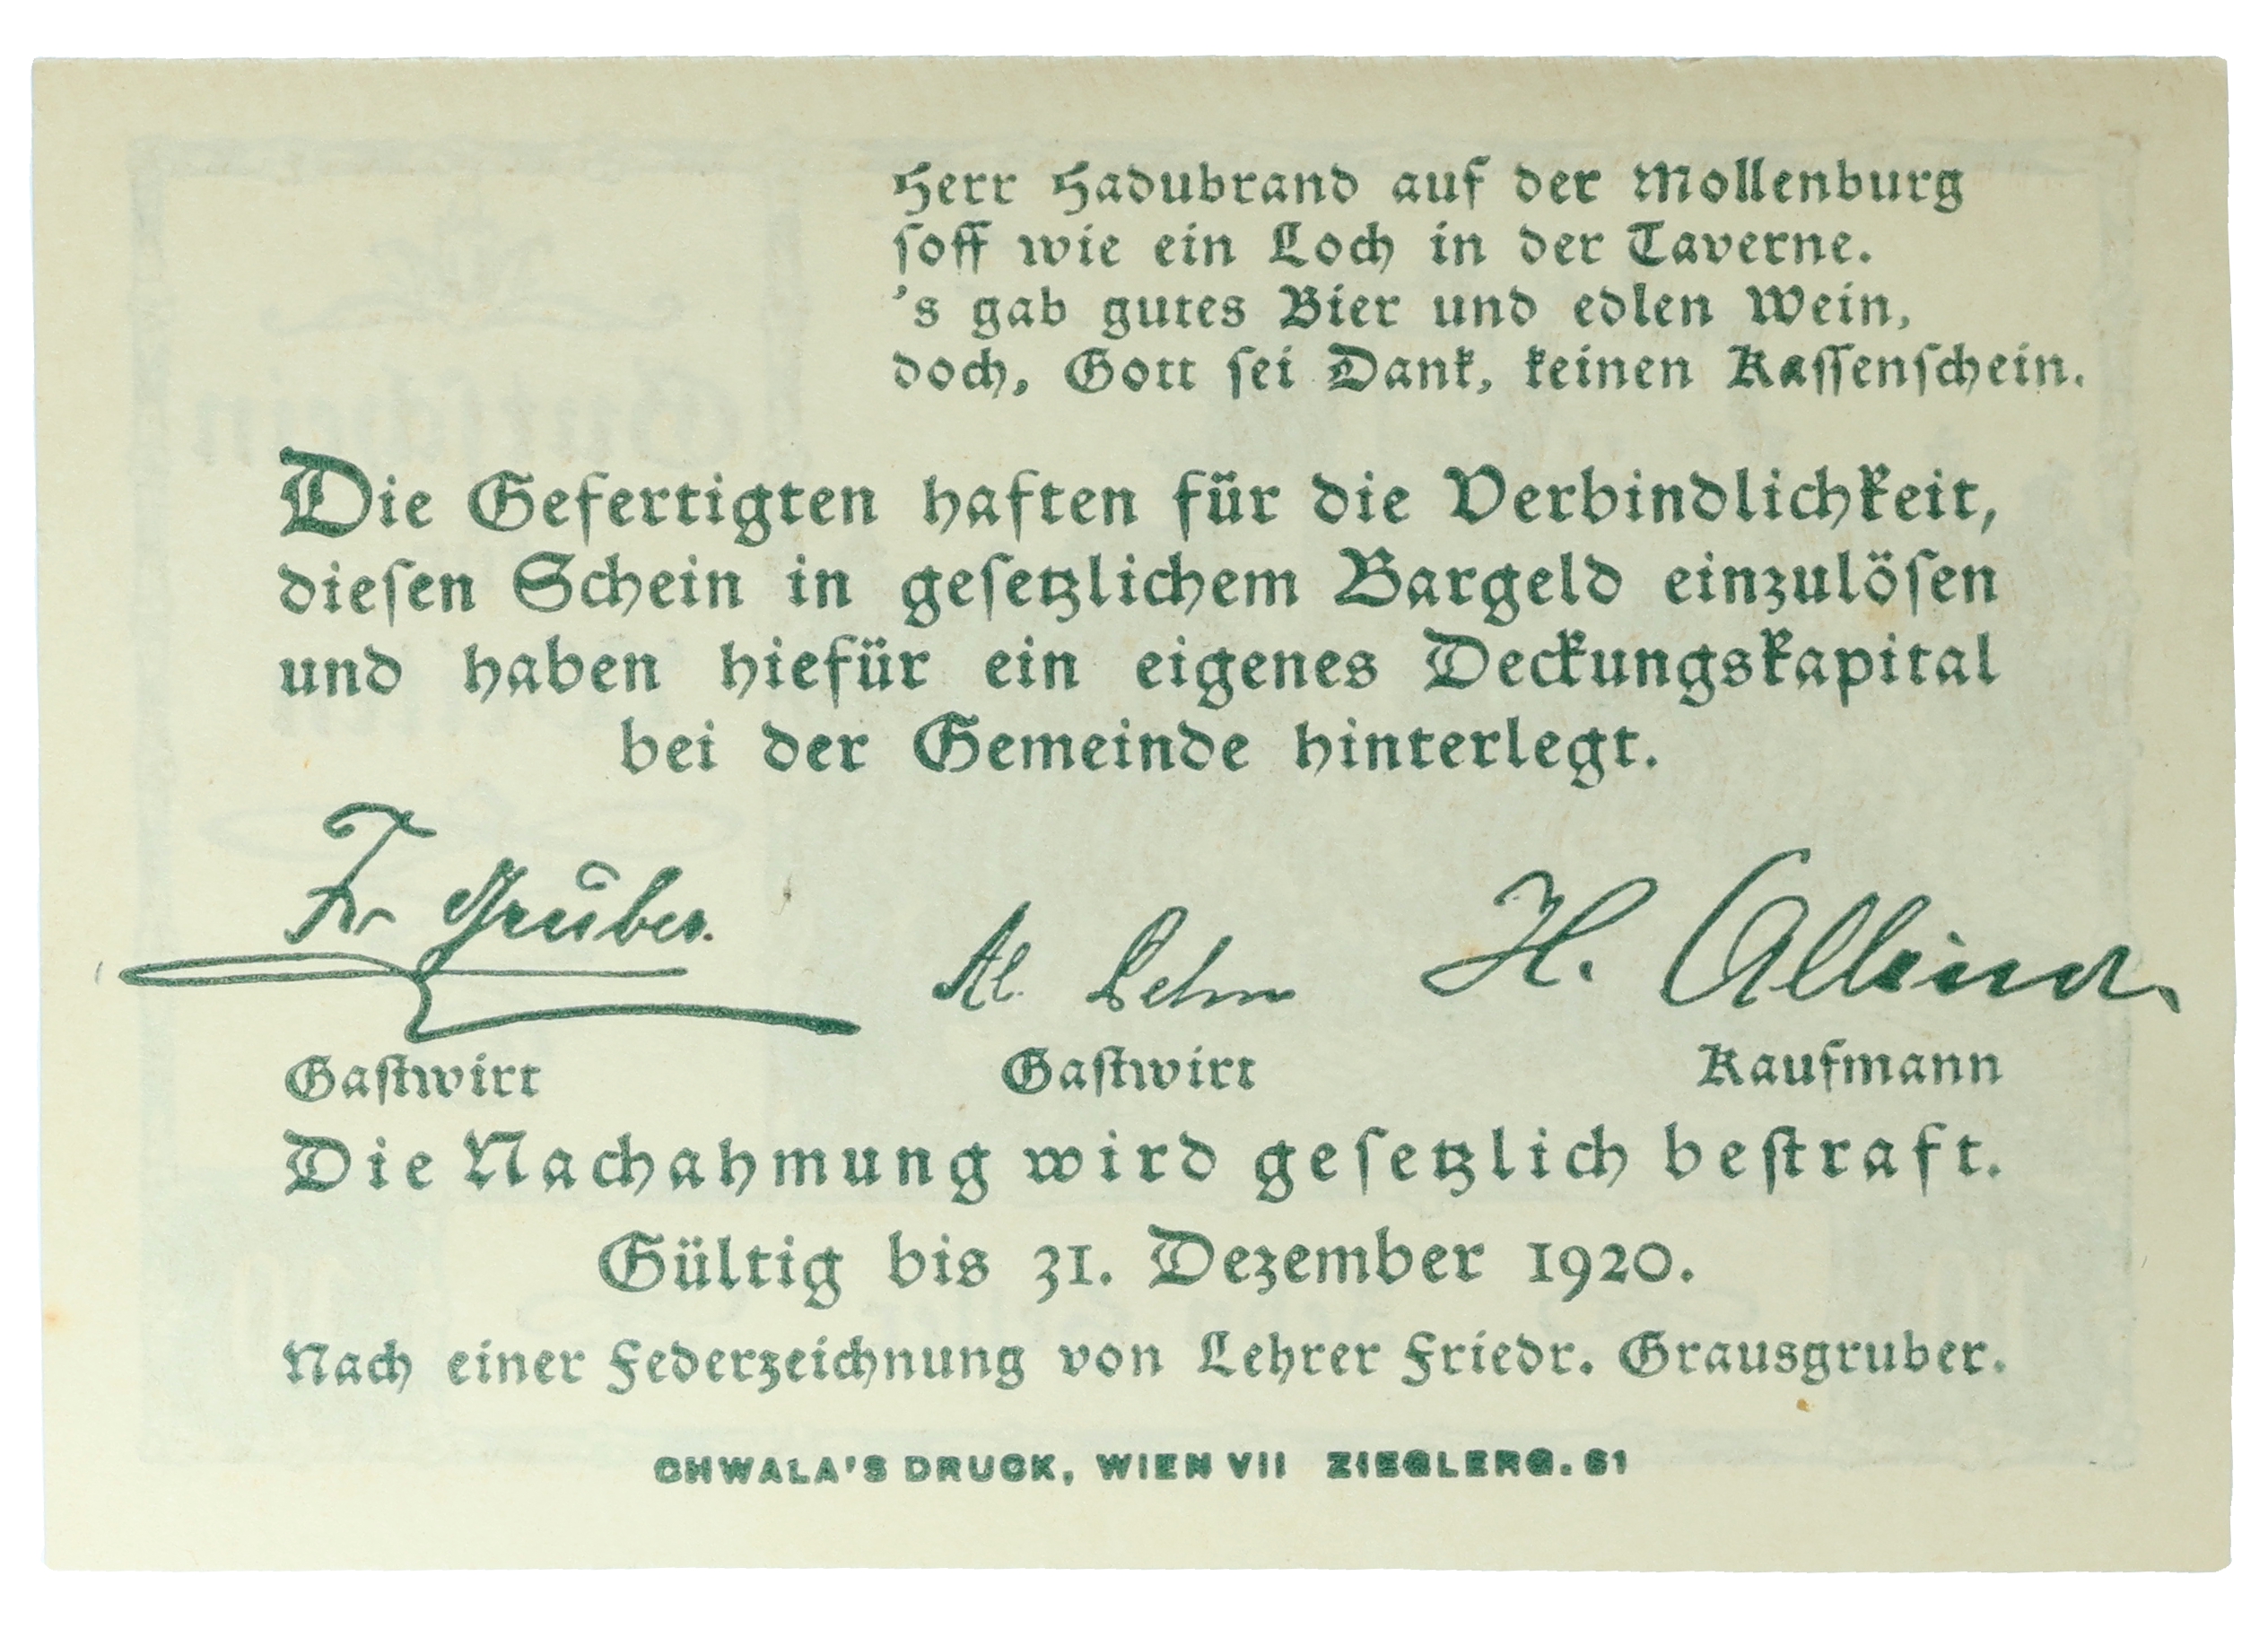 Herr Hadubrand auf der Mollenburg
soff wie ein Loch in der Taverne.
's gab gutes Bier und edlen Wein,
doch, Gott sei Dank, keinen Kassenschein.
Die Gefertigten haften für die Verbindlichkeit,
diesen Schein in gesetzlichem Bargeld einzulösen
und haben hiefür ein eigenes Deckungskapital
bei der Gemeinde hinterlegt.
Fr Gruber.
Gastwirt Gastwirt Kaufmann
Die Nachahmung wird gesetzlich bestraft.
Gültig bis 31. Dezember 1920.
Nach einer Federzeichnung von Lehrer Friedr. Grausgruber.
CHWALA'S DRUCK, WIEN VII ZIEGLERG. 61